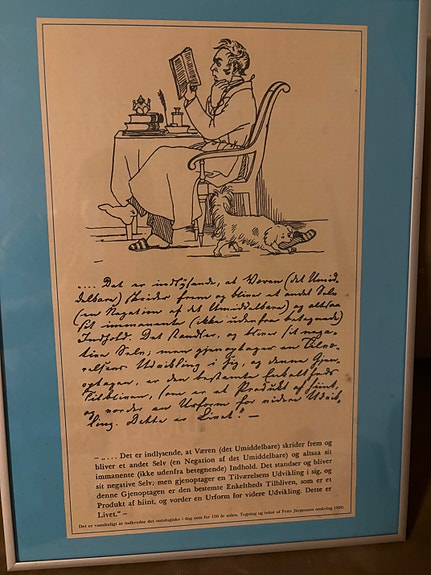 .... Det er indlysende, at Væren (det Umid-
delbare) skrider frem og bliver et andet Selv
(en Negation af det Umiddelbare) og altsaa
sit immanente (ikke udenfra betegnende)
Indhold. Det standser, og bliver sit nega-
tive Selv; men gjenoptager en Tilvæ-
relses Udvikling i sig, og denne Gjen-
optagen, er den bestemte Enkeltheds
Tilbliven, som er et Produkt af hiint,
og vorder en Urform for videre Udvik-
ling. Dette er Livet." —
– „.... Det er indlysende, at Væren (det Umiddelbare) skrider frem og
bliver et andet Selv (en Negation af det Umiddelbare) og altsaa sit
immanente (ikke udenfra betegnende) Indhold. Det standser og bliver
sit negative Selv; men gjenoptager en Tilværelsens Udvikling i sig, og
denne Gjenoptagen er den bestemte Enkeltheds Tilbliven, som er et
Produkt af hiint, og vorder en Urform for videre Udvikling. Dette er
Livet." –
Det er vanskeligt at indkredse det ontologiske i dag som for 150 år siden. Tegning og tekst af Fritz Jürgensen omkring